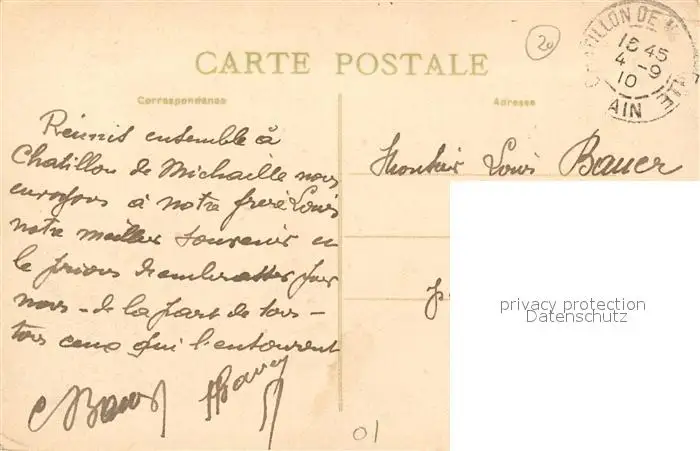 CARTE POSTALE
20
CHATILLON DE MICHAILLE
18 45
4 - 9
10
AIN
Correspondance
Adresse
Réunis ensemble à
Chatillon de Michaille nous
envoyons à notre frère Louis
notre meilleur souvenir en
le prions d'embrasser pour
nous - de la part de tous -
tous ceux qui l'entourent
Monsieur Louis Bauer
privacy protection
Datenschutz
01